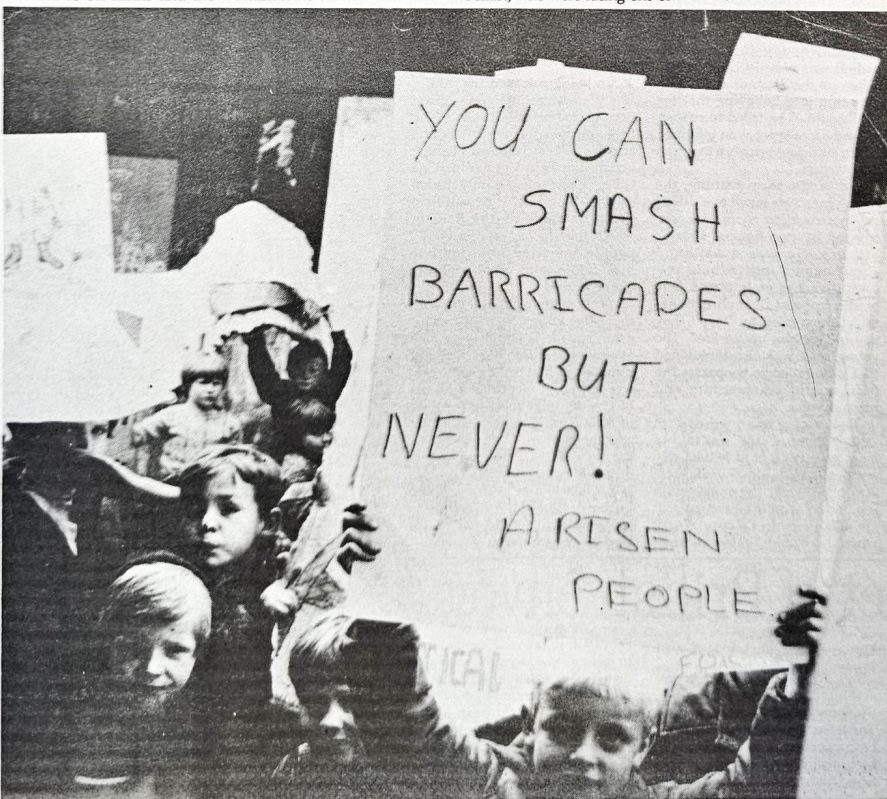 YOU CAN
SMASH
BARRICADES
BUT
NEVER!
A RISEN
PEOPLE